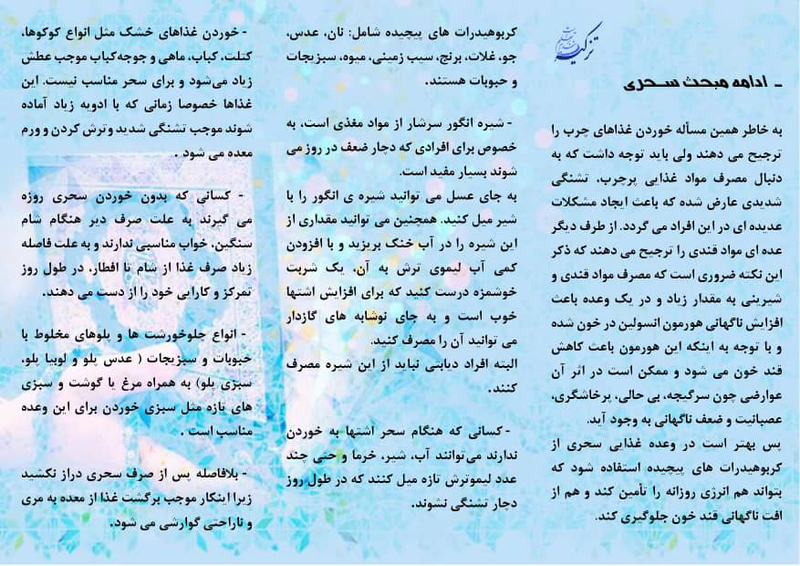 تزکیه
- ادامه مبحث سحری
به خاطر همین مسأله خوردن غذاهای چرب را
ترجیح می دهند ولی باید توجه داشت که به
دنبال مصرف مواد غذایی پرچرب، تشنگی
شدیدی عارض شده که باعث ایجاد مشکلات
عدیده ای در این افراد می گردد. از طرف دیگر
عده ای مواد قندی را ترجیح می دهند که ذکر
این نکته ضروری است که مصرف مواد قندی و
شیرینی به مقدار زیاد و در یک وعده باعث
افزایش ناگهانی هورمون انسولین در خون شده
و با توجه به اینکه این هورمون باعث کاهش
قند خون می شود و ممکن است در اثر آن
عوارضی چون سرگیجه، بی حالی، پرخاشگری،
عصبانیت و ضعف ناگهانی به وجود آید.
پس بهتر است در وعده غذایی سحری از
کربوهیدرات های پیچیده استفاده شود که
بتواند هم انرژی روزانه را تأمین کند و هم از
افت ناگهانی قند خون جلوگیری کند.
کربوهیدرات های پیچیده شامل: نان، عدس،
جو، غلات، برنج، سیب زمینی، میوه، سبزیجات
و حبوبات هستند.
- شیره انگور سرشار از مواد مغذی است، به
خصوص برای افرادی که دچار ضعف در روز می
شوند بسیار مفید است.
به جای عسل می توانید شیره ی انگور را با
شیر میل کنید. همچنین می توانید مقداری از
این شیره را در آب خنک بریزید و با افزودن
کمی آب لیموی ترش به آن، یک شربت
خوشمزه درست کنید که برای افزایش اشتها
خوب است و به جای نوشابه های گازدار
می توانید آن را مصرف کنید.
البته افراد دیابتی نباید از این شیره مصرف
کنند.
- کسانی که هنگام سحر اشتها به خوردن
ندارند می‌توانند آب، شیر، خرما و حتی چند
عدد لیموترش تازه میل کنند که در طول روز
دچار تشنگی نشوند.
- خوردن غذاهای خشک مثل انواع کوکوها،
کتلت، کباب، ماهی و جوجه‌کباب موجب عطش
زیاد می‌شود و برای سحر مناسب نیست. این
غذاها خصوصا زمانی که با ادویه زیاد آماده
شوند موجب تشنگی شدید وترش کردن و ورم
معده می شود .
- کسانی که بدون خوردن سحری روزه
می گیرند به علت صرف دیر هنگام شام
سنگین، خواب مناسبی ندارند و به علت فاصله
زیاد صرف غذا از شام تا افطار، در طول روز
تمرکز و کارایی خود را از دست می دهند.
- انواع چلوخورشت ها و پلوهای مخلوط با
حبوبات و سبزیجات ( عدس پلو و لوبیا پلو،
سبزی پلو) به همراه مرغ یا گوشت و سبزی
های تازه مثل سبزی خوردن برای این وعده
مناسب است .
- بلافاصله پس از صرف سحری دراز نکشید
زیرا اینکار موجب برگشت غذا از معده به مری
و ناراحتی گوارشی می شود.